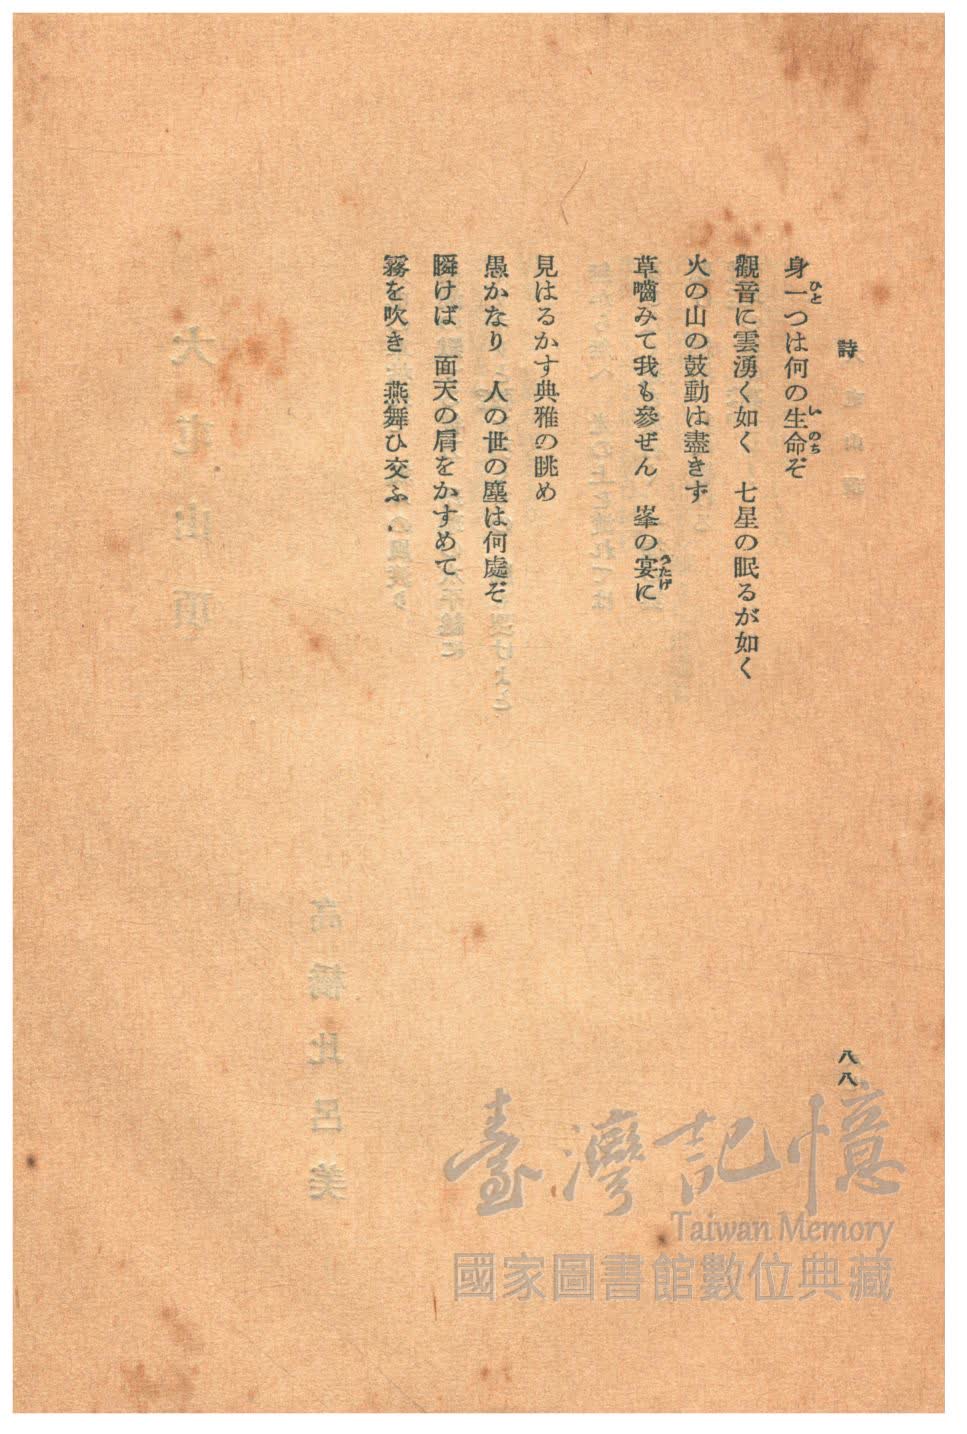 詩
身一つは何の生命ぞ
ひと
いのち
觀音に雲湧く如く 七星の眠るが如く
火の山の鼓動は盡きず
草嚙みて我も參ぜん 峯の宴に
うたげ
見はるかす典雅の眺め
愚かなり 人の世の塵は何處ぞ
瞬けば 面天の肩をかすめて
霧を吹き 燕舞ひ交ふ
八八
高橋比呂美
臺灣記憶
Taiwan Memory
國家圖書館數位典藏